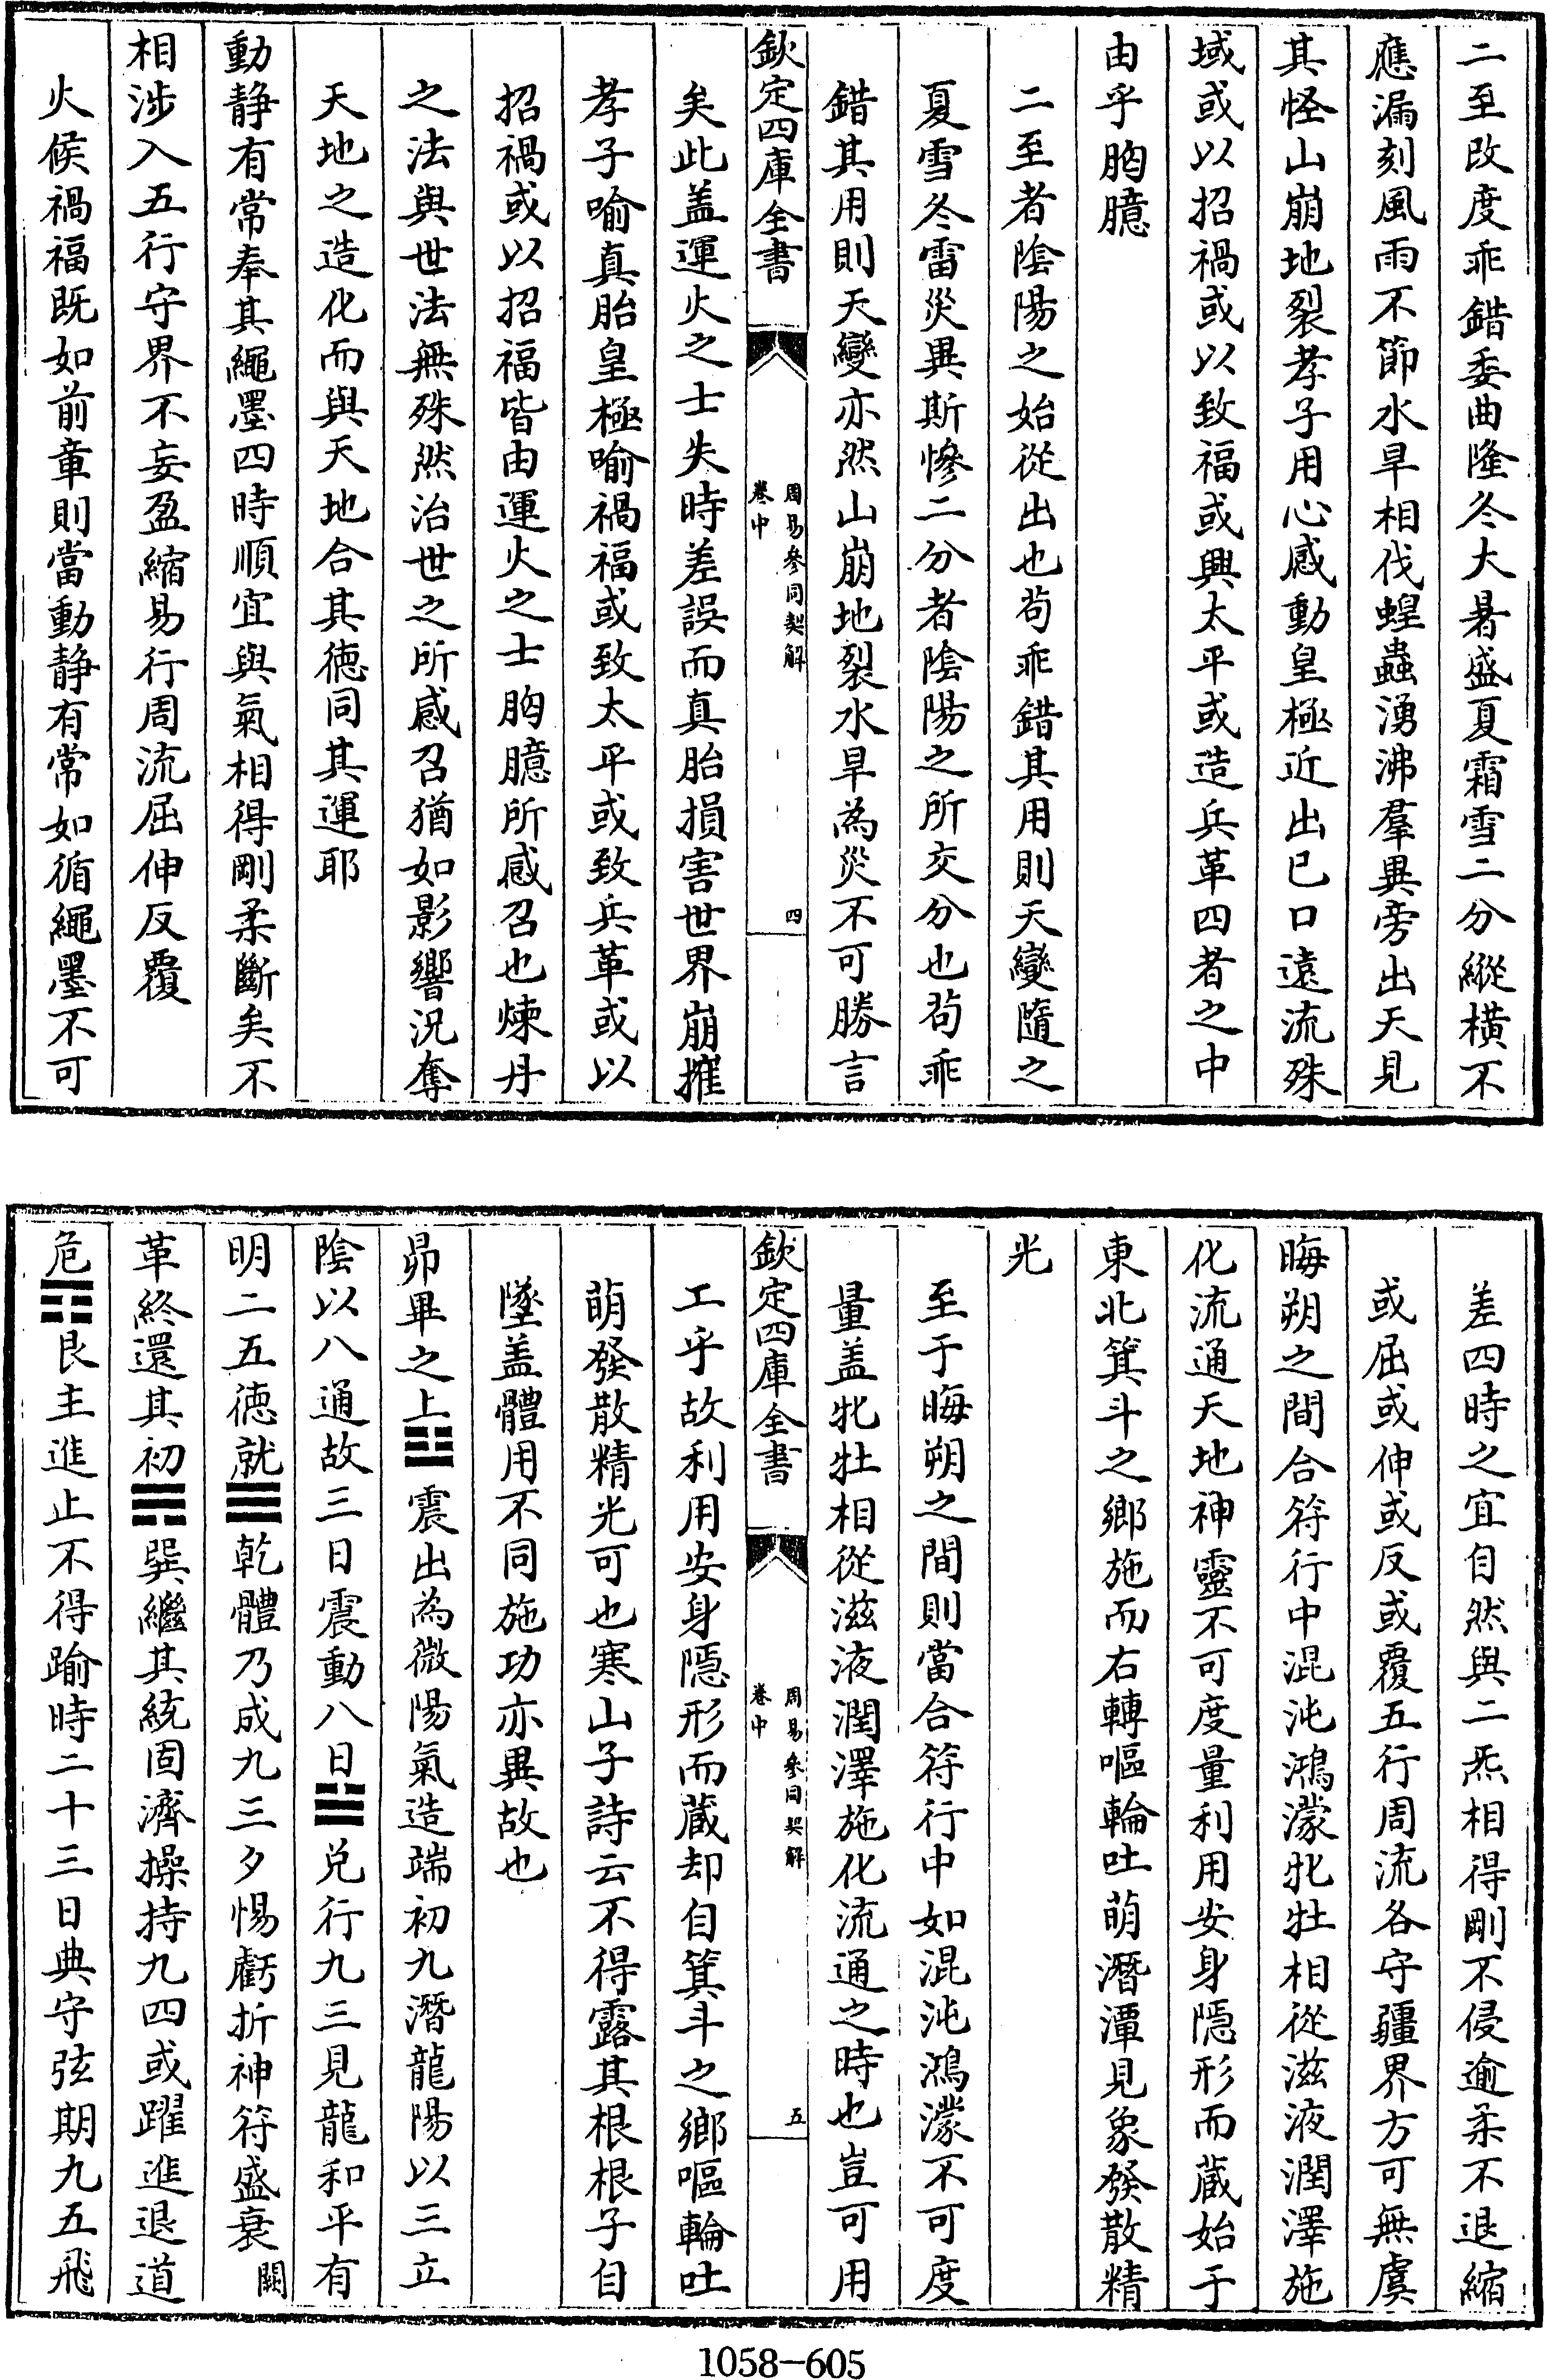 二至改度乖錯委曲隆冬大暑盛夏霜雪二分縱橫不
應漏刻風雨不節水旱相伐蝗蟲湧沸羣異旁出天見
其怪山崩地裂孝子用心感動皇極近出已口遠流殊
域或以招禍或以致福或興太平或造兵革四者之中
由乎胷臆
二至者陰陽之始從出也茍乖錯其用則天變隨之
夏雪冬雷災異斯慘二分者陰陽之所交分也茍乖
錯其用則天變亦然山崩地裂水旱為災不可勝言
欽定四庫全書
周易參同契解
卷中
四
矣此盖運火之士失時差誤而真胎損害世界崩摧
孝子喻真胎皇極喻禍福或致太平或致兵革或以
招禍或以招福皆由運火之士胷臆所感召也煉丹
之法與世法無殊然治世之所感召猶如影響況奪
天地之造化而與天地合其徳同其運耶
動靜有常奉其繩墨四時順宜與氣相得剛柔斷矣不
相渉入五行守界不妄盈縮易行周流屈伸反覆
火候禍福既如前章則當動靜有常如循繩墨不可
差四時之宜自然與二炁相得剛不侵逾柔不退縮
或屈或伸或反或覆五行周流各守疆界方可無虞
晦朔之間合符行中混沌鴻濛牝牡相從滋液潤澤施
化流通天地神靈不可度量利用安身隱形而藏始于
東北箕斗之鄉旋而右轉嘔輪吐萌潛潭見象發散精
光
至于晦朔之間則當合符行中如混沌鴻濛不可度
量盖牝牡相從滋液潤澤施化流通之時也豈可用
欽定四庫全書
周易參同契解
卷中
五
工乎故利用安身隱形而藏却自箕斗之鄉嘔輪吐
萌發散精光可也寒山子詩云不得露其根根子自
墜盖體用不同施功亦異故也
昴畢之上☳震出為微陽氣造端初九潛龍陽以三立
陰以八通故三日震動八日☱兌行九三見龍和平有
明二五徳就☰乾體乃成九三夕惕虧折神符盛衰闕
革終還其初☴巽繼其統固濟操持九四或躍進退道
危☶艮主進止不得踰時二十三日典守弦期九五飛
1058-605